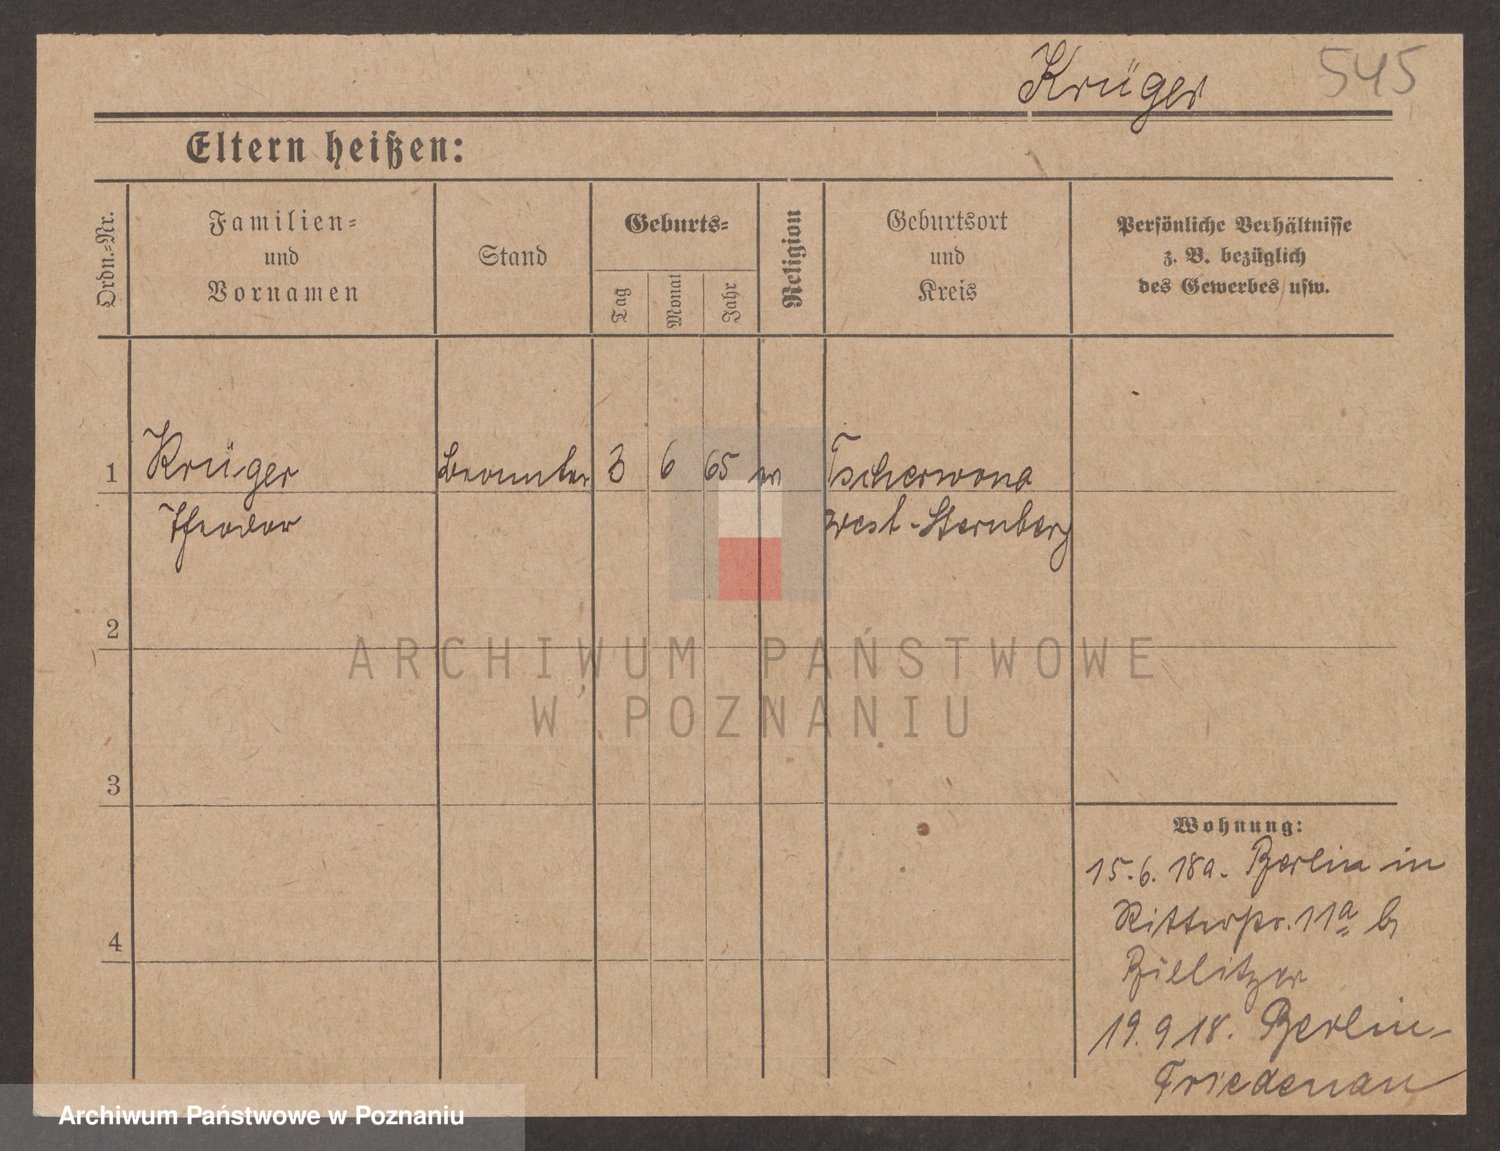 Krüger 545
Eltern heißen:
Ordn.-Nr.
Familien-
und
Vornamen
Stand
Geburts-
Tag
Monat
Jahr
Religion
Geburtsort
und
Kreis
Persönliche Verhältnisse
z. B. bezüglich
des Gewerbes usw.
1 Krüger Beamter 3 6 65 Tscherwona
Theodor West-Sternberg
2
ARCHIWUM PAŃSTWOWE
W POZNANIU
3
Wohnung:
15.6.18 a. Berlin in
Ritterstr. 11a b
Bielitzer
4
19.9.18. Berlin-
Friedenau
Archiwum Państwowe w Poznaniu